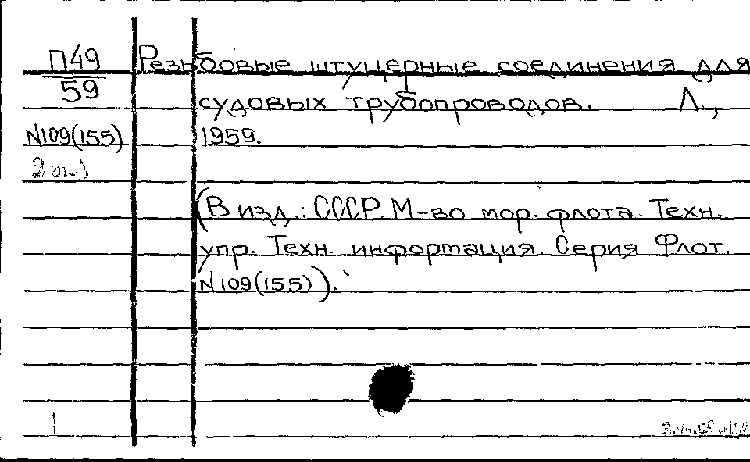 П49 Резьбовые штуцерные соединения для
59 судовых трубопроводов. Л.,
N109(155) 1959.
(В изд.: СССР. М-во мор. флота. Техн.
упр. Техн. информация. Серия Флот.
N109(155)).